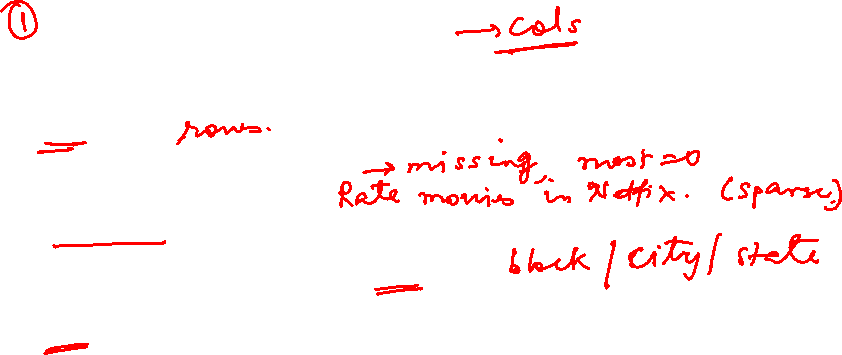 ①
→ cols
rows.
→ missing, most = 0
Rate movies in Netflix. (sparse)
block / city / state